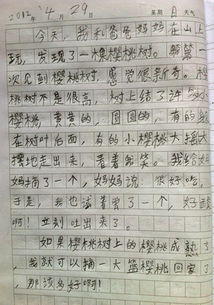 2012年4月29日 星期日 天气
今天，我和爸爸妈妈在山上
玩，发现了一棵樱桃树。我第一
次见到樱桃树，感觉很新奇。樱
桃树不是很高，树上结了许多小
樱桃，黄黄的，圆圆的，有的躲
在树叶后面，有的小大摇大
摆地走出来，看着我笑。我给妈
妈摘了一个，妈妈说：很好吃。
于是，我也试着尝了一个，好酸
啊！立刻吐出来了。
如果樱桃树上的樱桃成熟了
，我就可以摘一大篮樱桃回家了
，那该多好啊！